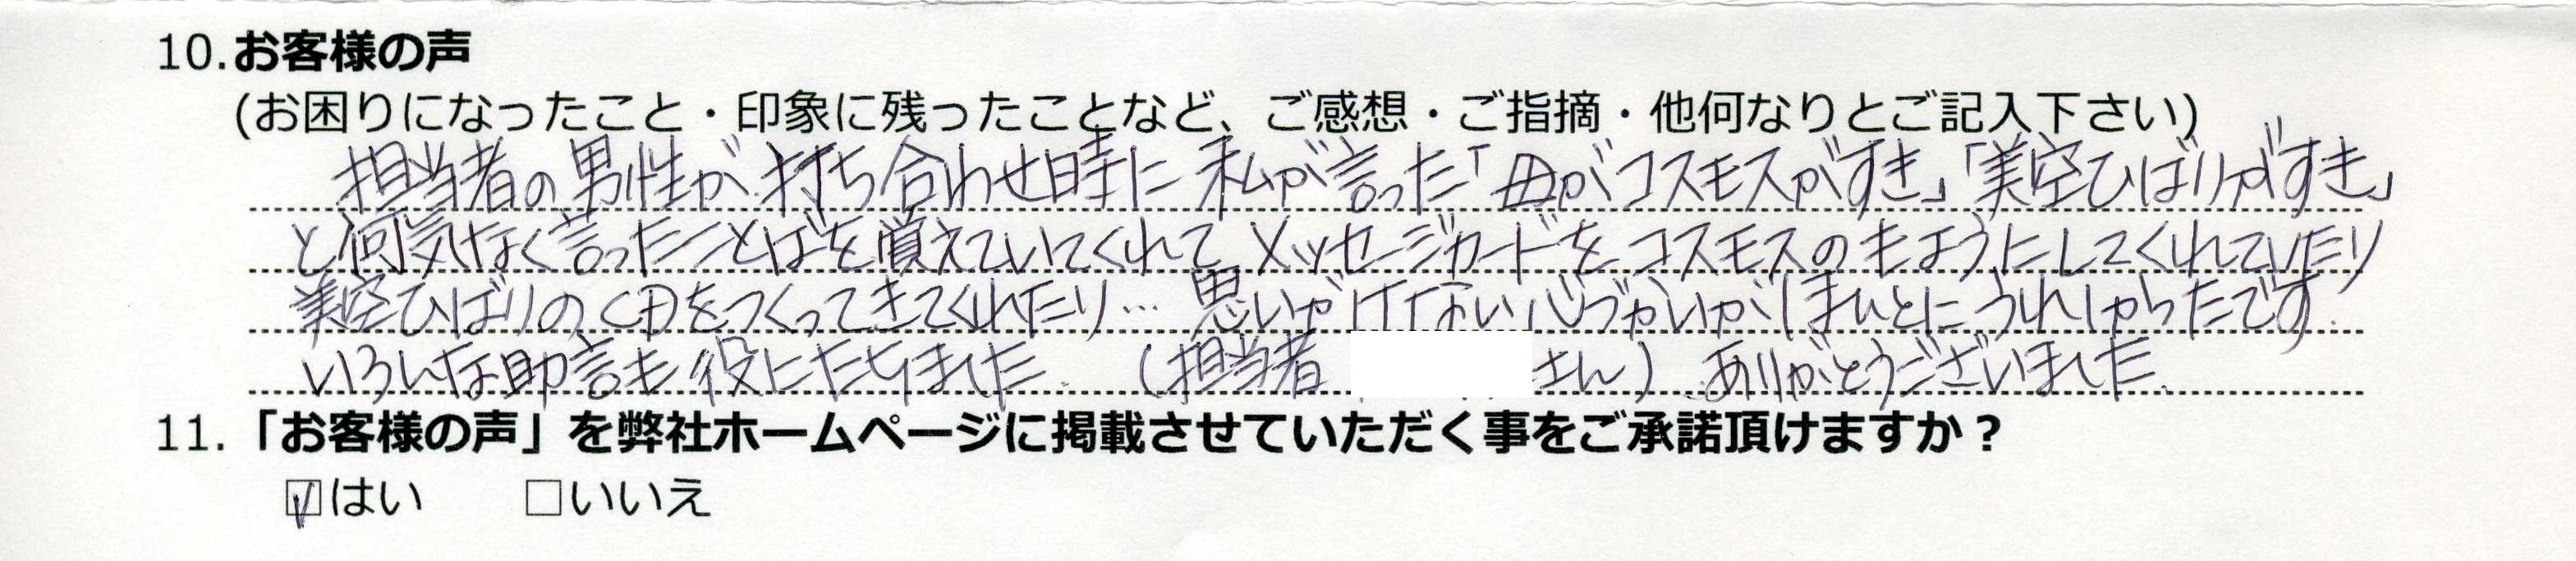 10.お客様の声
(お困りになったこと・印象に残ったことなど、ご感想・ご指摘・他何なりとご記入下さい)
担当者の男性が、打ち合わせ時に私が言った「母がコスモスがすき」「美空ひばりがすき」
と何気なく言ったことばを覚えていてくれて、メッセージカードをコスモスのもようにしてくれていたり
美空ひばりのCDをつくってきてくれたり… 思いがけない心づかいがほんとにうれしかったです.
いろんな助言も役にたちました. (担当者 さん) ありがとうございました.
11.「お客様の声」を弊社ホームページに掲載させていただく事をご承諾頂けますか？
☑はい □いいえ